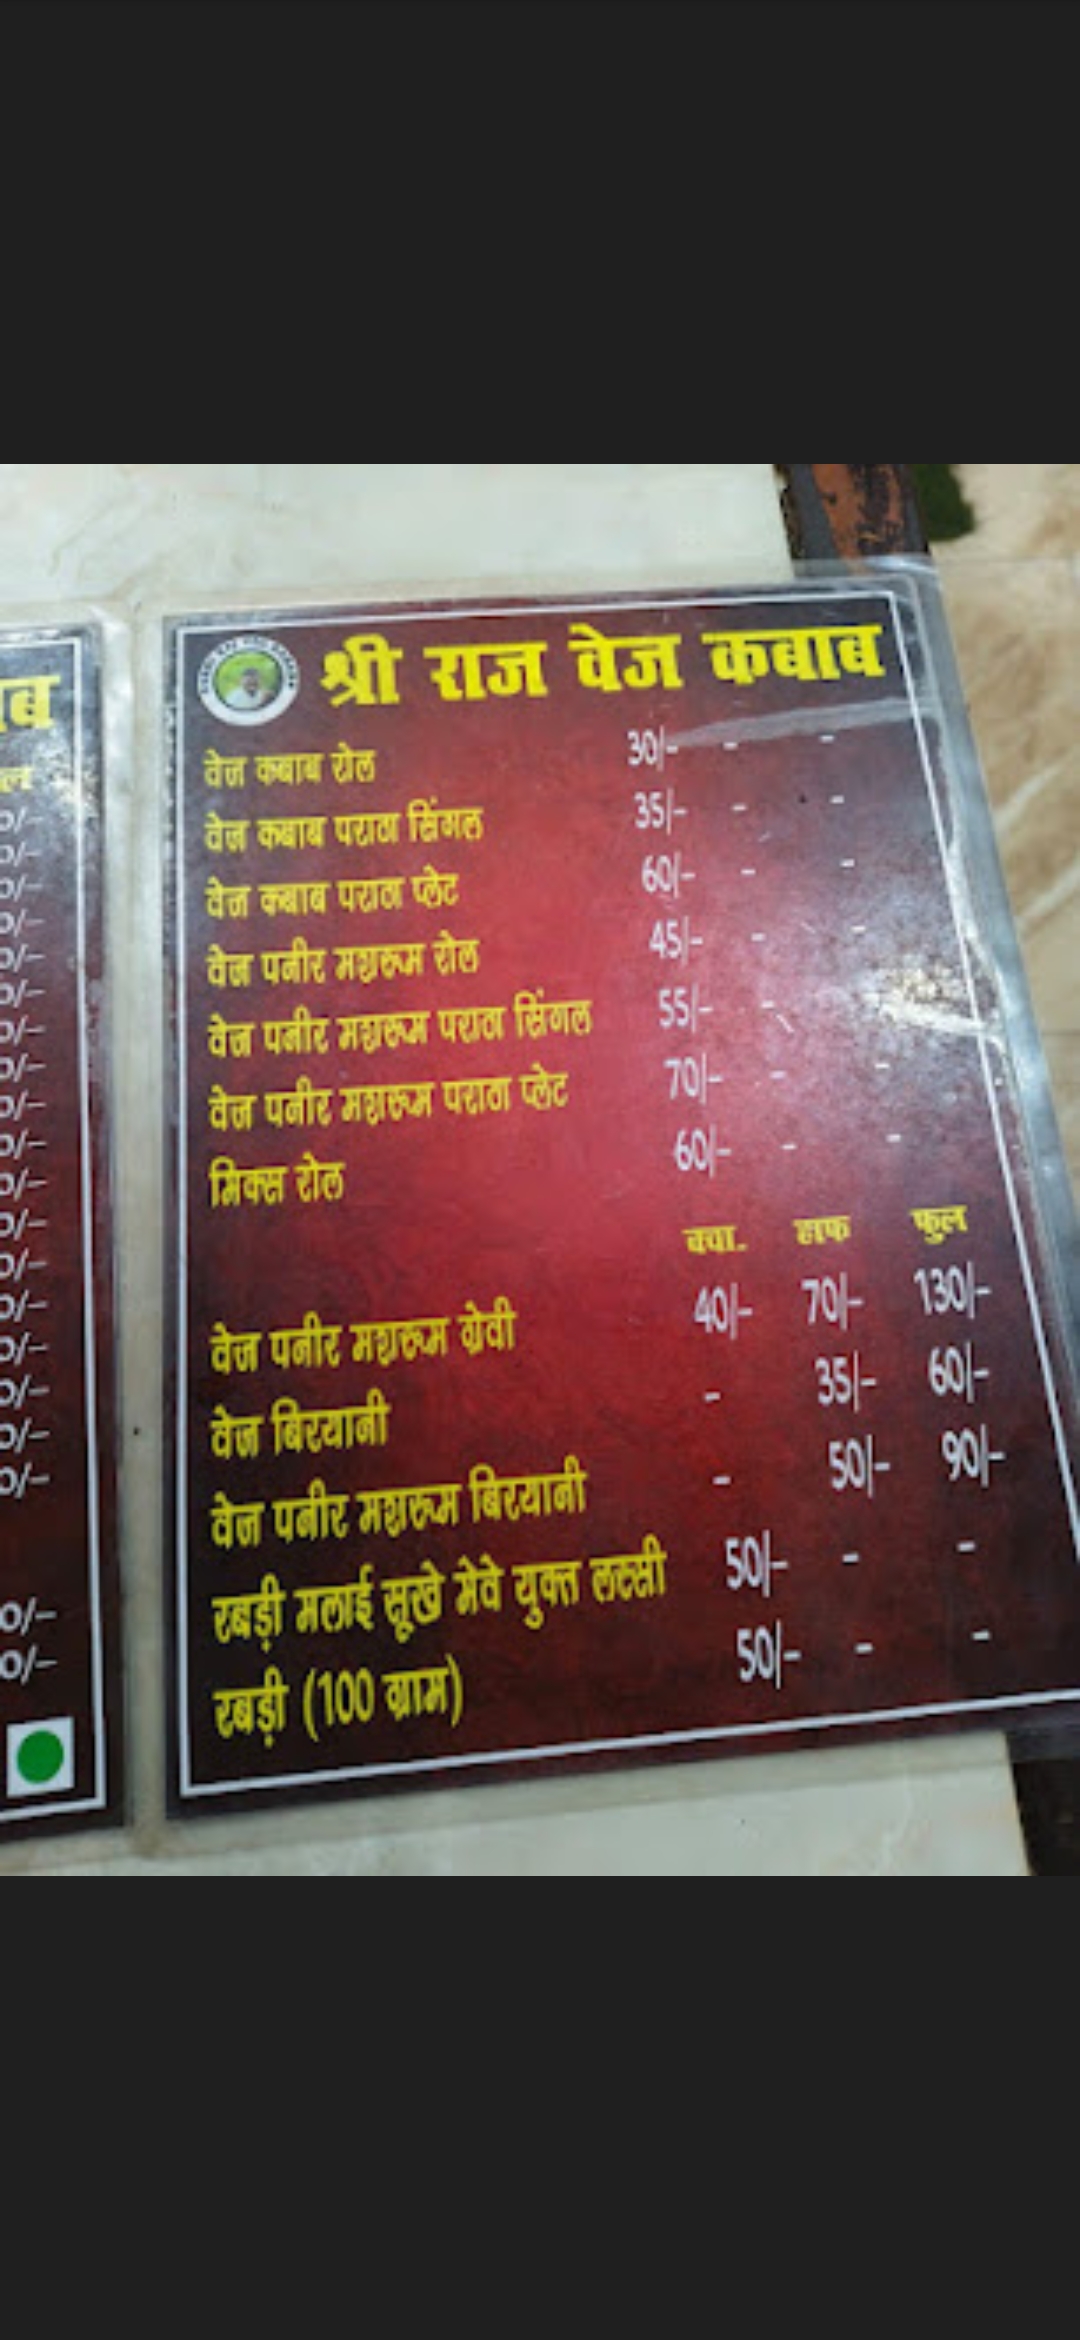 श्री राज वेज कबाब
वेज कबाब रोल 30/- - -
वेज कबाब पराठा सिंगल 35/- - -
वेज कबाब पराठा प्लेट 60/- - -
वेज पनीर मशरूम रोल 45/- - -
वेज पनीर मशरूम पराठा सिंगल 55/- -
वेज पनीर मशरूम पराठा प्लेट 70/- - -
मिक्स रोल 60/- - -
क्वा. हाफ फुल
वेज पनीर मशरूम ग्रेवी 40/- 70/- 130/-
वेज बिरयानी - 35/- 60/-
वेज पनीर मशरूम बिरयानी - 50/- 90/-
रबड़ी मलाई सूखे मेवे युक्त लस्सी 50/- - -
रबड़ी (100 ग्राम) 50/- - -